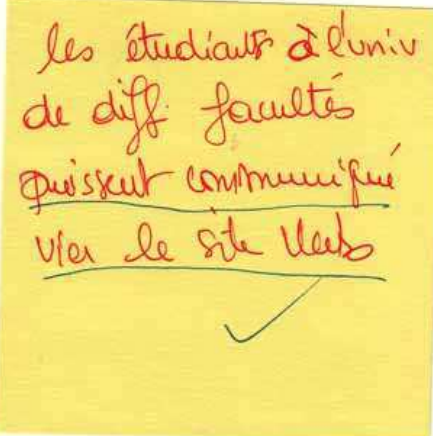 les étudiants à l'univ
de diff. facultés
puissent communiqué
via le site Web